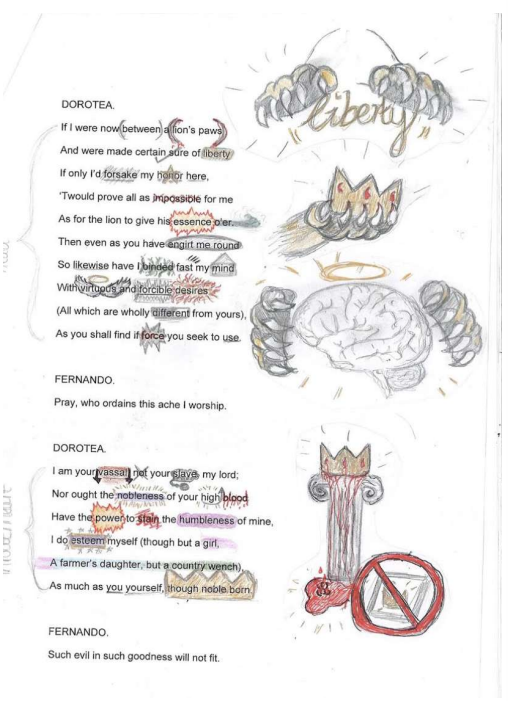 DOROTEA.
If I were now between a lion's paws
And were made certain sure of liberty
If only I'd forsake my honor here,
'Twould prove all as impossible for me
As for the lion to give his essence o'er.
Then even as you have engirt me round
So likewise have I binded fast my mind
With virtuous and forcible desires
(All which are wholly different from yours),
As you shall find if force you seek to use.
FERNANDO.
Pray, who ordains this ache I worship.
DOROTEA.
I am your vassal, not your slave, my lord;
Nor ought the nobleness of your high blood
Have the power to stain the humbleness of mine,
I do esteem myself (though but a girl,
A farmer's daughter, but a country wench),
As much as you yourself, though noble born.
FERNANDO.
Such evil in such goodness will not fit.
liberty